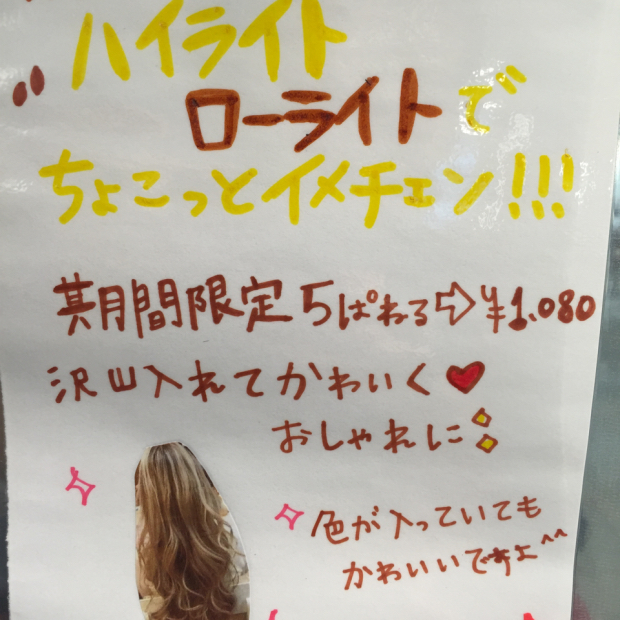 ハイライト
"ローライトで
ちょこっとイメチェン!!!
期間限定5ぱねる⇨¥1.080
沢山入れてかわいく♥
おしゃれに
色が入っていても
かわいいですよ^^